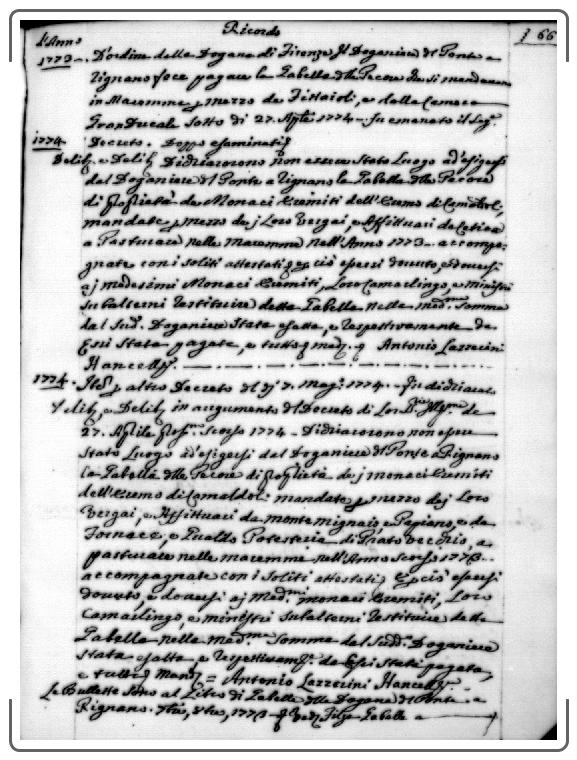 Ricordo 66
d'Anno
1773. D'ordine della Dogana di Firenze Il Doganiere del Ponte a
Rignano fece pagare la Gabella delle Pecore che si mandarono
in Maremma per mezzo de Fittaioli, e dalla Camera
GranDucale sotto di 27. Aprile 1774 fu emanato il seg.
Decreto. Doppo esaminati
1774 Delib. e Delib. Dichiararono non essere stato Luogo ad'esigersi
dal Doganiere del Ponte a Rignano la Gabella delle Pecore
di proprietà de Monaci Eremiti dell'Eremo di Camaldol:
mandate per mezzo dej Loro Vergai, e Affittuari de
a Pasturare nelle Maremme nell'Anno 1773 accompa:
gnate con i soliti attestati, e perciò essersi dovuto, e doversi
aj medesimi Monaci Eremiti, Loro Camarlingo, e ministri
subalterni restituire detta Gabella nella med.ma somma
dal Sud. Doganiere stata esatta, e respettivamente da
Essi stata pagata, e tutto Antonio Lazzerini
Cancell.
1774. altro Decreto del dì 7. Mag. 1774. fù dichiarato
Delib. e Delib. in argumento del Decreto di Lor de
27. Aprile pros. scorso 1774 Dichiararono non essere
stato Luogo ad'esigersi dal Doganiere del Ponte a Rignano
la Gabella delle Pecore di proprietà dej monaci Eremiti
dell'Eremo di Camaldol: mandate per mezzo dej Loro
Vergai, e Affittuari da montemignaio, e Papiano, e da
Fornace, e Potesteria di Prato Vecchio, a
pasturare nelle maremme nell'Anno scorso 1773
accompagnate con i soliti attestati, e perciò essersi
dovuto, e doversi aj Med.mi monaci Eremiti, Loro
Camarlingo, e ministri subalterni restituire detta
Gabella nella med.ma somma dal Sudd. Doganiere
stata esatta, e respettivam. da Essi stata pagata,
e tutto Mand. = Antonio Lazzerini Cancell.
Le Bullette sono al Libro di Gabelle della Dogana del Ponte a
Rignano. 1773 Gabelle a